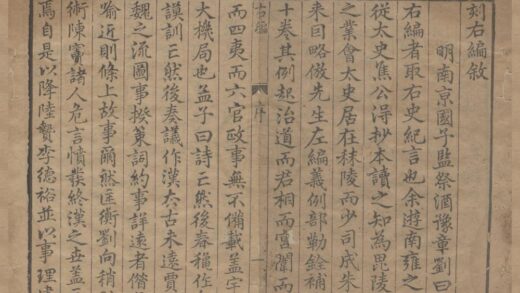 刻右編敘
明南京國子監祭酒豫章劉曰
右編者取右史紀言也余游南雍之
從太史焦公得抄本讀之知為毘陵
之業會太史居在秣陵而少司成朱
來回略倣先生左編義例部勒銓補
十卷其例起治道而若相而宮闈而
右編
序
一
而四夷而六官政事無不備載蓋宇
大機局也孟子曰詩亾然後春秋作
謨訓亾然後奏議作漢去古未遠賈
魏之流圖事揆策詞約事詳遠者借
喻近則條上故事爾然匡衡劉向稍
術陳竇諸人危言憤發終漢之世蓋
焉自是以降陸贄李德裕並以事理